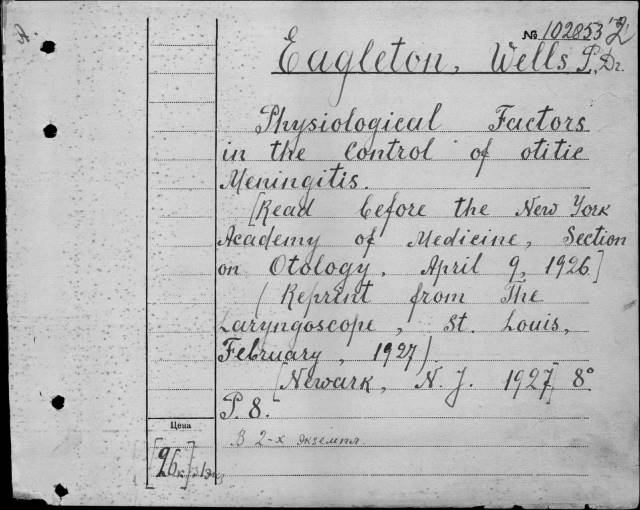 № 102853 2
Eagleton, Wells P., Dr.
Physiological Factors
in the control of otitic
Meningitis.
[Read before the New York
Academy of Medicine, Section
on Otology, April 9, 1926]
(Reprint from The
Laryngoscope, St. Louis,
February, 1927).
[Newark, N. J. 1927] 8°
P. 8.
В 2-х экземпл.
Цена
[26к]